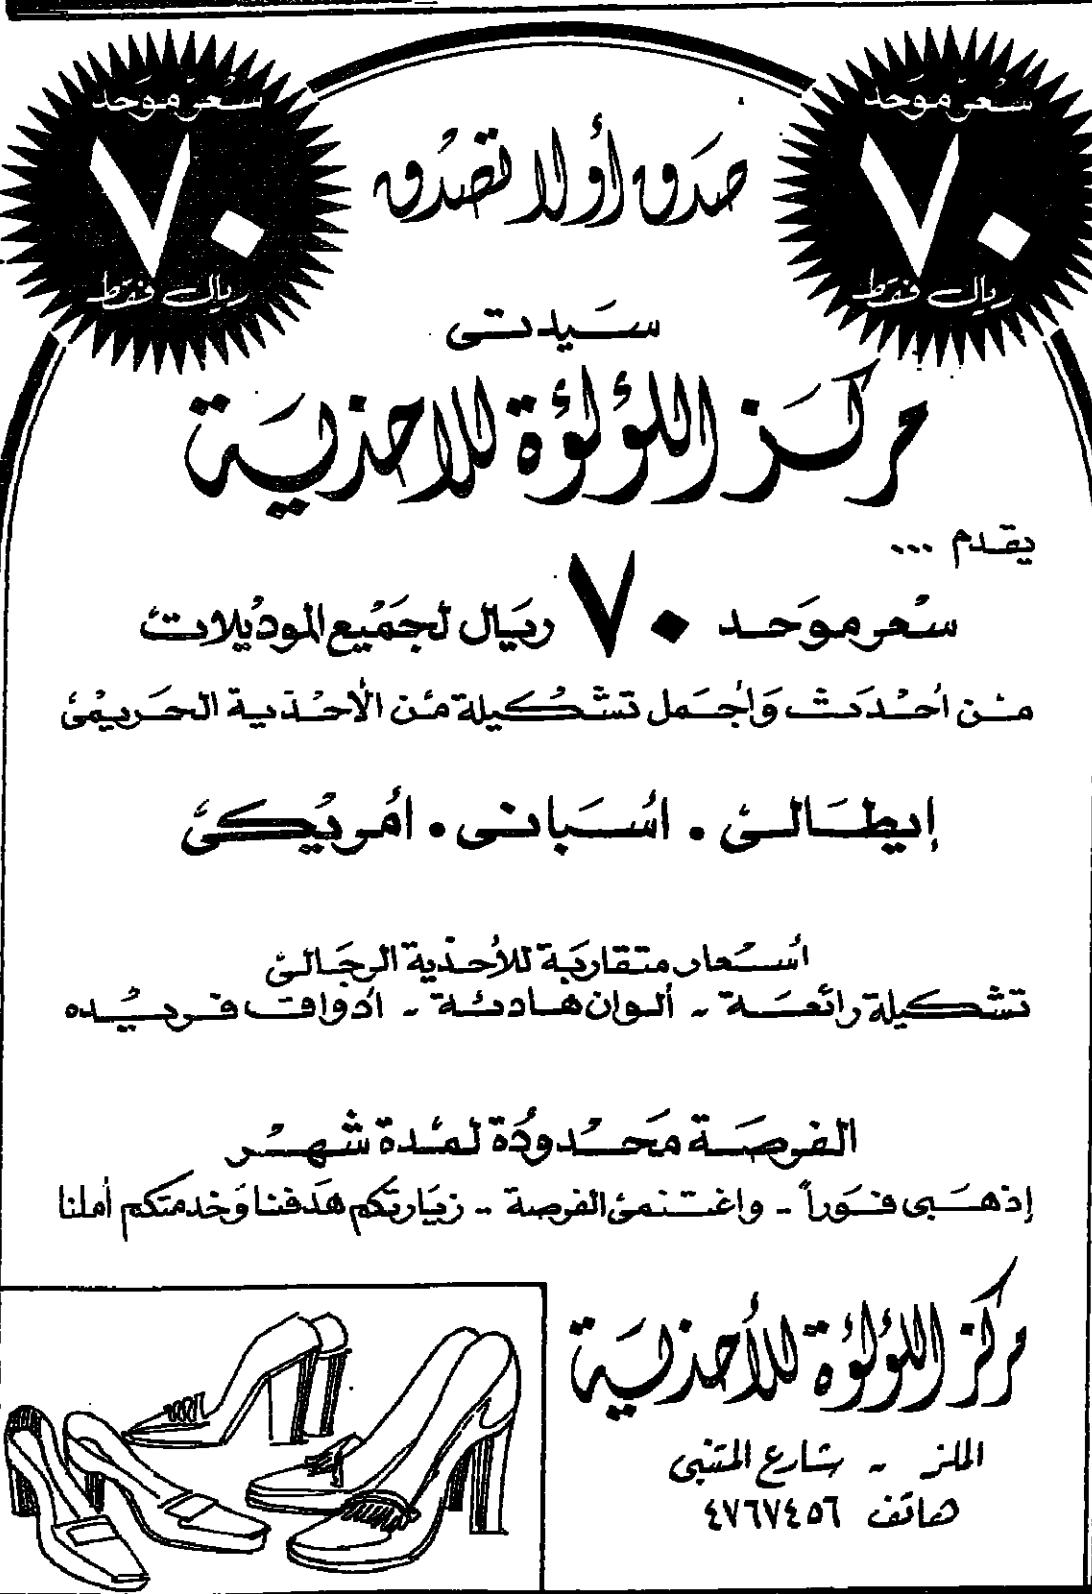 سعر موحد
٧٠
ريال فقط
سعر موحد
٧٠
ريال فقط
صدق أولا تصدق
سيدتى
مركز اللؤلؤة للاحذية
يقدم ...
سعر موحد ٧٠ ريال لجميع الموديلات
من أحدث وأجمل تشكيلة من الأحذية الحريمى
إيطالى . أسبانى . أمريكى
أسعار متقاربة للأحذية الرجالى
تشكيلة رائعة - ألوان هادئة - أذواق فريده
الفرصة محدودة لمدة شهر
إذهبى فوراً - واغتنمى الفرصة - زيارتكم هدفنا وخدمتكم أملنا
مركز اللؤلؤة للأحذية
الملز - شارع المتنبى
هاتف ٤٧٦٧٤٥٦